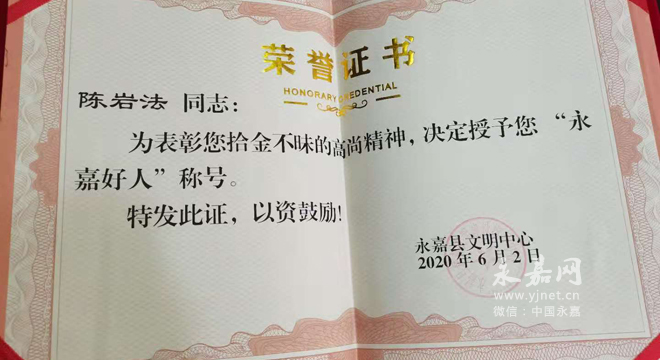 荣誉证书
HONORARY CREDENTIAL
陈岩法 同志：
为表彰您拾金不昧的高尚精神，决定授予您 “永
嘉好人”称号。
特发此证，以资鼓励！
永嘉县文明中心
2020年6月2日
永嘉网
www.yjnet.cn
微信：中国永嘉